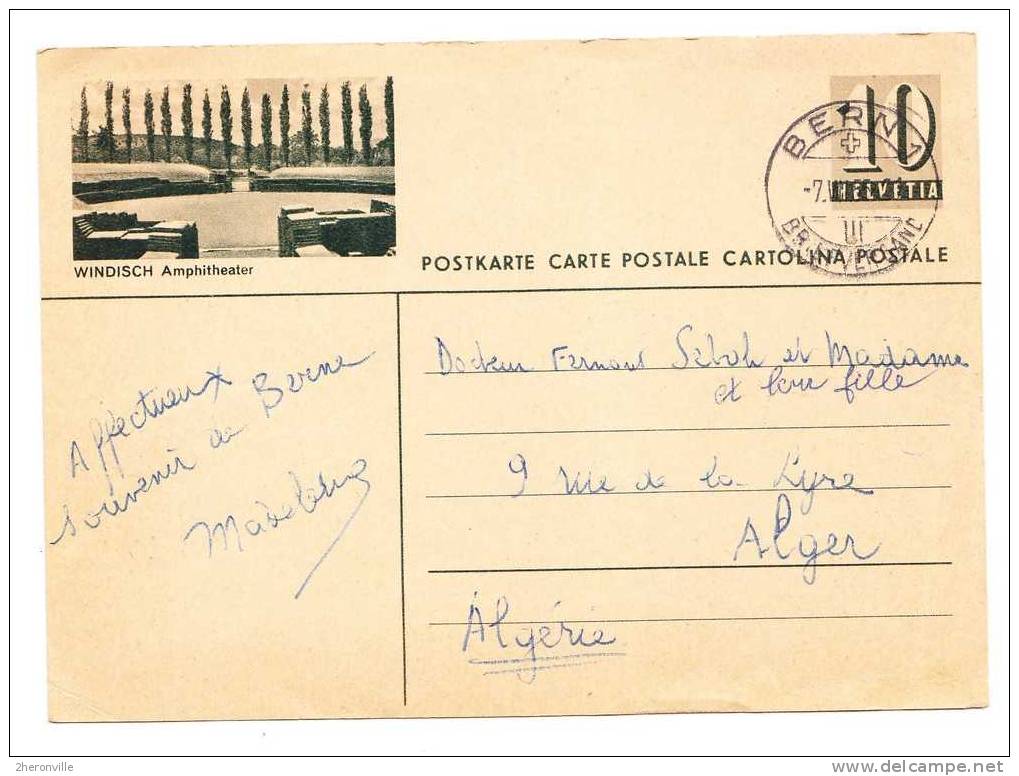 WINDISCH Amphitheater
10
HELVETIA
BERN 1
-7.V
III
BRIEFVERSAND
POSTKARTE CARTE POSTALE CARTOLINA POSTALE
Affectueux
souvenir de Berne
Madeleine
Docteur Fernand et Madame
et leur fille
9 Rue de la Lyre
Alger
Algérie
2heronville
www.delcampe.net